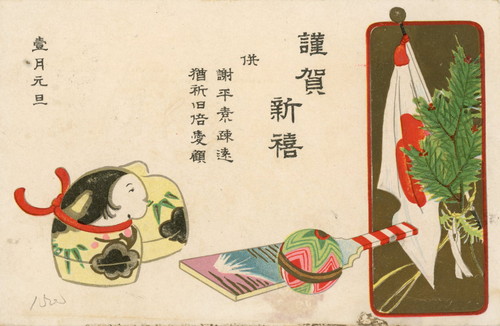 謹賀新禧
供
謝平素疎遠
猶祈旧倍愛顧
壹月元旦